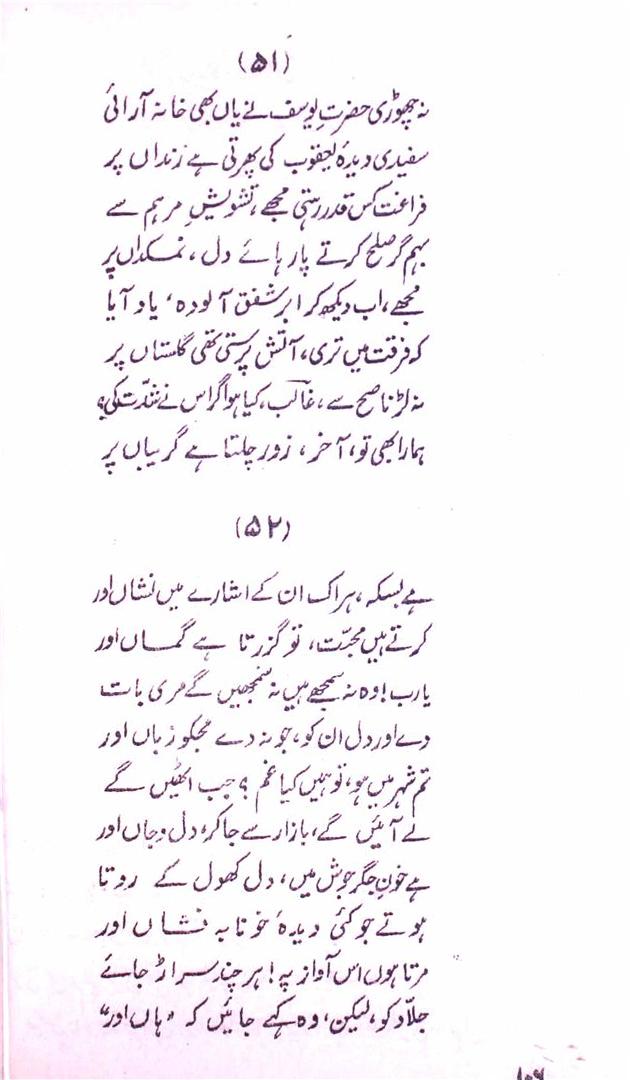 (۵۱)
نہ چھوڑی حضرتِ یوسف نے یاں بھی خانہ آرائی
سفیدی دیدۂ یعقوب کی پھرتی ہے زنداں پر
فراغت کس قدر رہتی مجھے، تشویشِ مرہم سے
بہم گر صلح کرتے پارہائے دل، نمکداں پر
مجھے، اب دیکھ کر ابرِ شفق آلودہ، یاد آیا
کہ فرقت میں تری، آتش پرستی تھی گلستاں پر
نہ لڑ ناصح سے، غالب، کیا ہوا گر اس نے شدّت کی؟
ہمارا بھی تو، آخر، زور چلتا ہے گریباں پر
(۵۲)
ہے بسکہ، ہر اک ان کے اشارے میں نشاں اور
کرتے ہیں محبّت، تو گزرتا ہے گماں اور
یارب! وہ نہ سمجھے ہیں نہ سمجھیں گے مری بات
دے اور دل ان کو، جو نہ دے مجکو زباں اور
تم شہر میں ہو، تو ہمیں کیا غم؟ جب اٹھیں گے
لے آئیں گے، بازار سے جا کر، دل و جاں اور
ہے خونِ جگر جوش میں، دل کھول کے روتا
ہوتے جو کئی دیدۂ خونابہ فشاں اور
مرتا ہوں اس آواز پہ! ہر چند سر اڑ جائے
جلّاد کو، لیکن، وہ کہے جائیں کہ "ہاں اور"